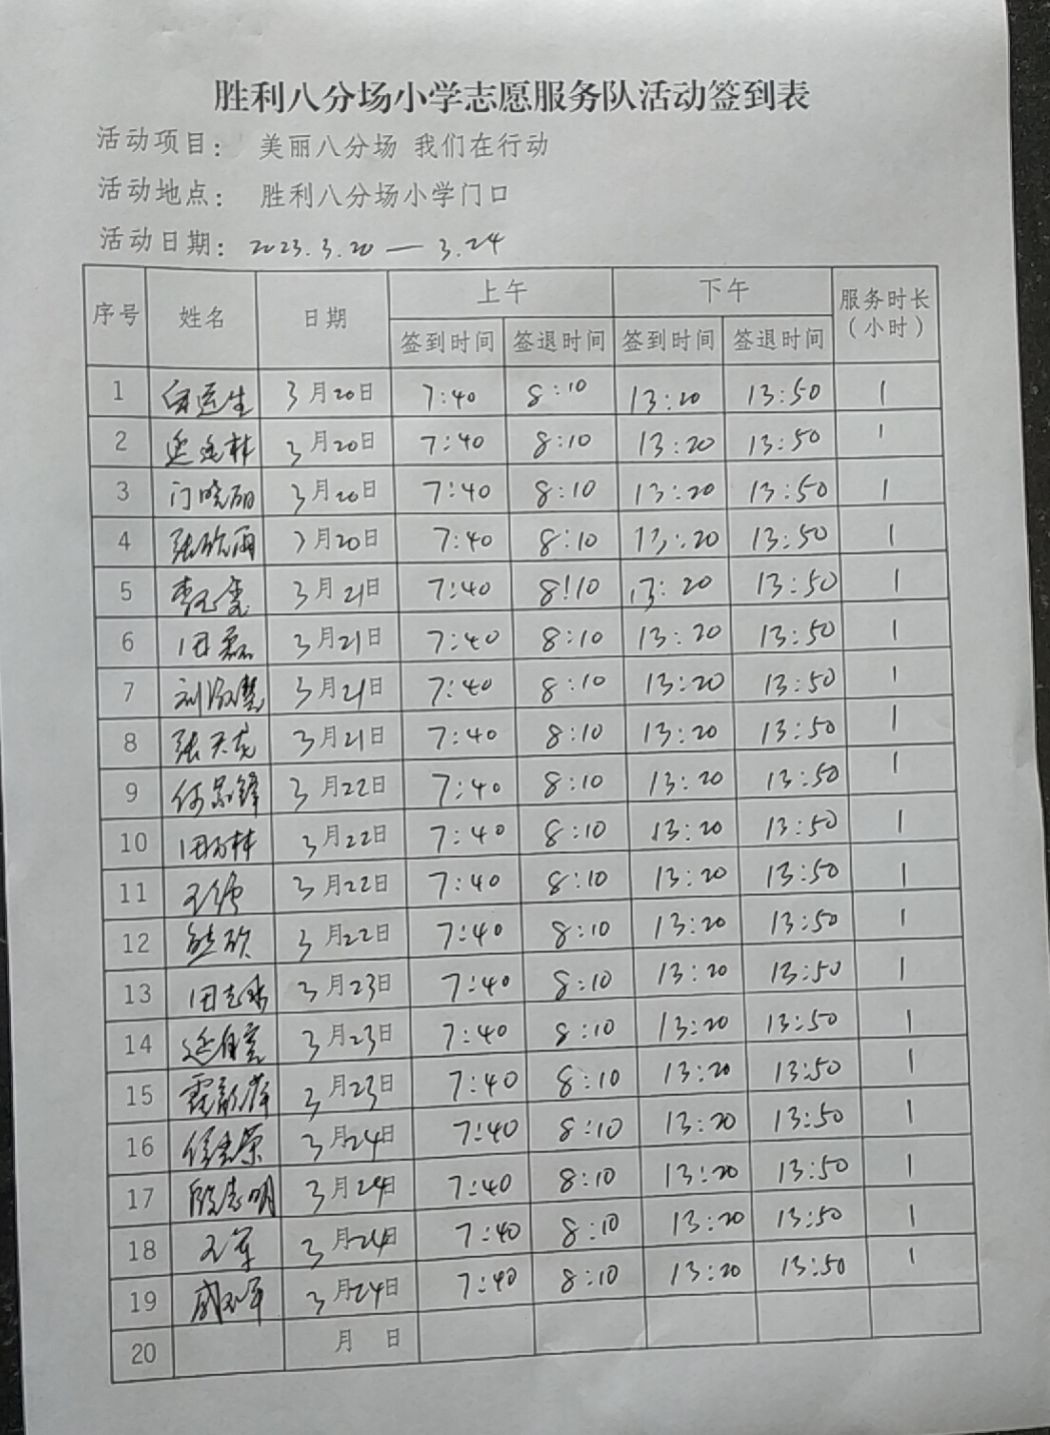 胜利八分场小学志愿服务队活动签到表
活动项目： 美丽八分场 我们在行动
活动地点： 胜利八分场小学门口
活动日期：2023.3.20—3.24
序号 姓名 日期 上午 下午 服务时长（小时）
签到时间 签退时间 签到时间 签退时间
1 3月20日 7:40 8:10 13:20 13:50 1
2 3月20日 7:40 8:10 13:20 13:50 1
3 门晓丽 3月20日 7:40 8:10 13:20 13:50 1
4 张欣雨 3月20日 7:40 8:10 13:20 13:50 1
5 3月21日 7:40 8:10 13:20 13:50 1
6 田磊 3月21日 7:40 8:10 13:20 13:50 1
7 刘淑慧 3月21日 7:40 8:10 13:20 13:50 1
8 张天龙 3月21日 7:40 8:10 13:20 13:50 1
9 3月22日 7:40 8:10 13:20 13:50 1
10 3月22日 7:40 8:10 13:20 13:50 1
11 3月22日 7:40 8:10 13:20 13:50 1
12 3月22日 7:40 8:10 13:20 13:50 1
13 3月23日 7:40 8:10 13:20 13:50 1
14 3月23日 7:40 8:10 13:20 13:50 1
15 3月23日 7:40 8:10 13:20 13:50 1
16 3月24日 7:40 8:10 13:20 13:50 1
17 殷志明 3月24日 7:40 8:10 13:20 13:50 1
18 王军 3月24日 7:40 8:10 13:20 13:50 1
19 3月24日 7:40 8:10 13:20 13:50 1
20 月 日